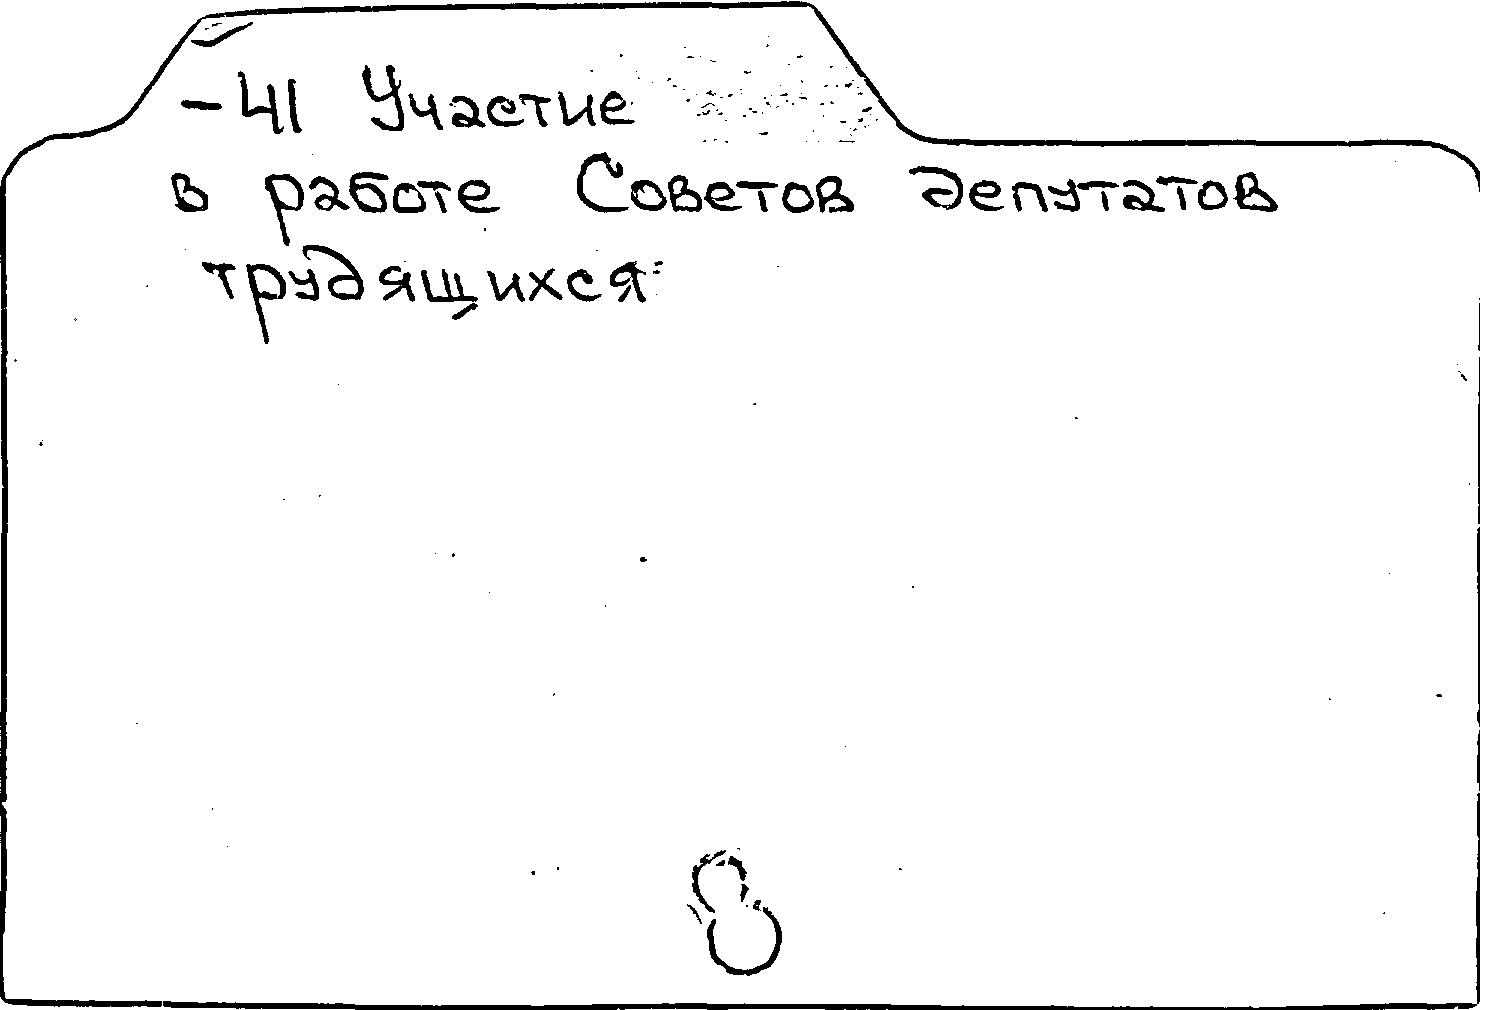 -41 Участие
в работе Советов депутатов
трудящихся